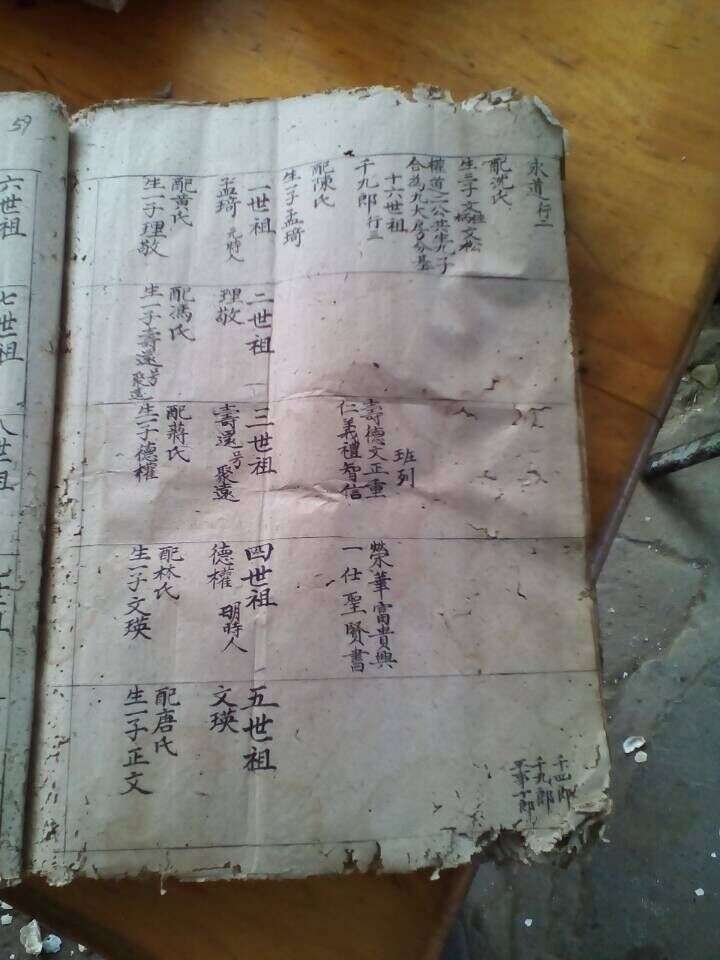 永道行二
配沈氏
生三子文
文松
權道二公共生九子
合為九大房分基
十六世祖
千九郎行三
配陳氏
生一子孟琦
一世祖
孟琦 元時人
配黃氏
生一子理敬
二世祖
理敬
配馮氏
生一子壽遠號聚遠
班列
壽德文正重
仁義禮智信
三世祖
壽遠號聚遠
配蔣氏
生一子德權
榮華富貴興
一仕聖賢書
四世祖
德權 明時人
配林氏
生一子文瑛
五世祖
文瑛
配唐氏
生一子正文
千四郎
千九郎
十郎
59
六世祖
七世祖
八世祖